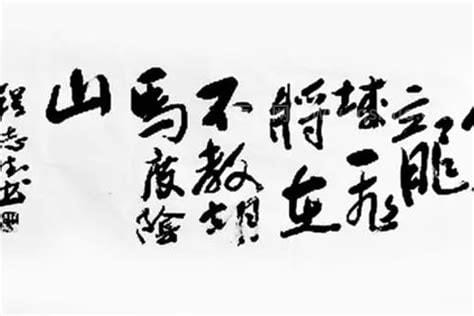 龍
城飛
將在
不教胡
馬度陰
山
志書